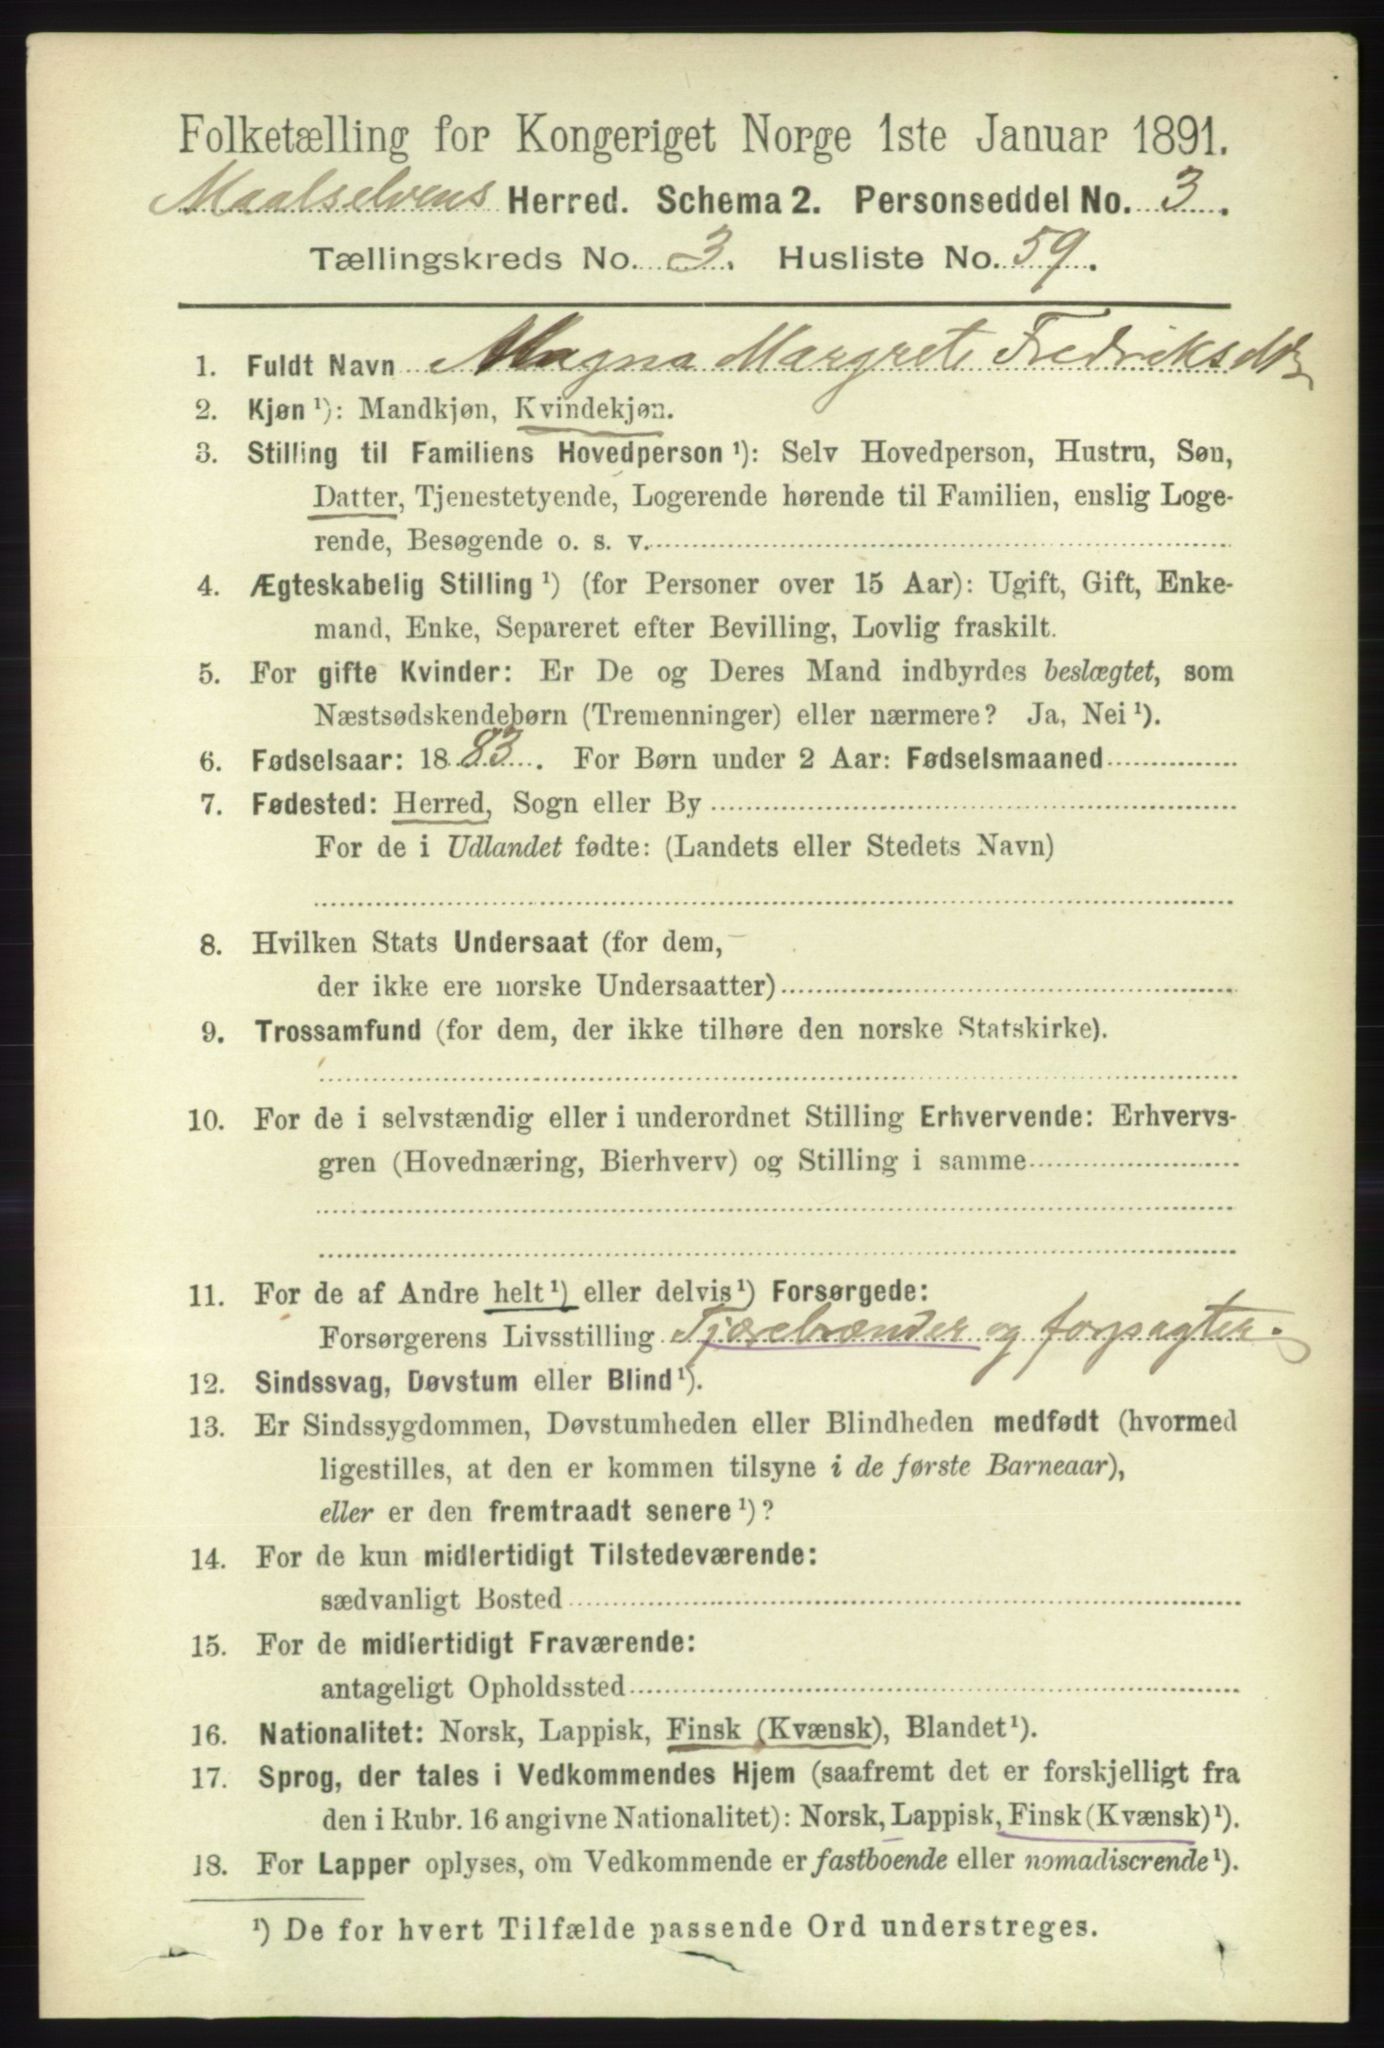 Folketælling for Kongeriget Norge 1ste Januar 1891.
Maalselvens Herred. Schema 2. Personseddel No. 3.
Tællingskreds No. 3. Husliste No. 59.
1. Fuldt Navn Magna Margrete Fredriksdtr
2. Kjøn ¹): Mandkjøn, Kvindekjøn.
3. Stilling til Familiens Hovedperson ¹): Selv Hovedperson, Hustru, Søn,
Datter, Tjenestetyende, Logerende hørende til Familien, enslig Loge-
rende, Besøgende o. s. v.
4. Ægteskabelig Stilling ¹) (for Personer over 15 Aar): Ugift, Gift, Enke-
mand, Enke, Separeret efter Bevilling, Lovlig fraskilt.
5. For gifte Kvinder: Er De og Deres Mand indbyrdes beslægtet, som
Næstsødskendebørn (Tremenninger) eller nærmere? Ja, Nei ¹).
6. Fødselsaar: 1883. For Børn under 2 Aar: Fødselsmaaned
7. Fødested: Herred, Sogn eller By
For de i Udlandet fødte: (Landets eller Stedets Navn)
8. Hvilken Stats Undersaat (for dem,
der ikke ere norske Undersaatter)
9. Trossamfund (for dem, der ikke tilhøre den norske Statskirke).
10. For de i selvstændig eller i underordnet Stilling Erhvervende: Erhvervs-
gren (Hovednæring, Bierhverv) og Stilling i samme
11. For de af Andre helt ¹) eller delvis ¹) Forsørgede:
Forsørgerens Livsstilling Tjærebrænder og forpagter.
12. Sindssvag, Døvstum eller Blind ¹).
13. Er Sindssygdommen, Døvstumheden eller Blindheden medfødt (hvormed
ligestilles, at den er kommen tilsyne i de første Barneaar),
eller er den fremtraadt senere ¹)?
14. For de kun midlertidigt Tilstedeværende:
sædvanligt Bosted
15. For de midlertidigt Fraværende:
antageligt Opholdssted
16. Nationalitet: Norsk, Lappisk, Finsk (Kvænsk), Blandet ¹).
17. Sprog, der tales i Vedkommendes Hjem (saafremt det er forskjelligt fra
den i Rubr. 16 angivne Nationalitet): Norsk, Lappisk, Finsk (Kvænsk) ¹).
18. For Lapper oplyses, om Vedkommende er fastboende eller nomadiserende ¹).
¹) De for hvert Tilfælde passende Ord understreges.